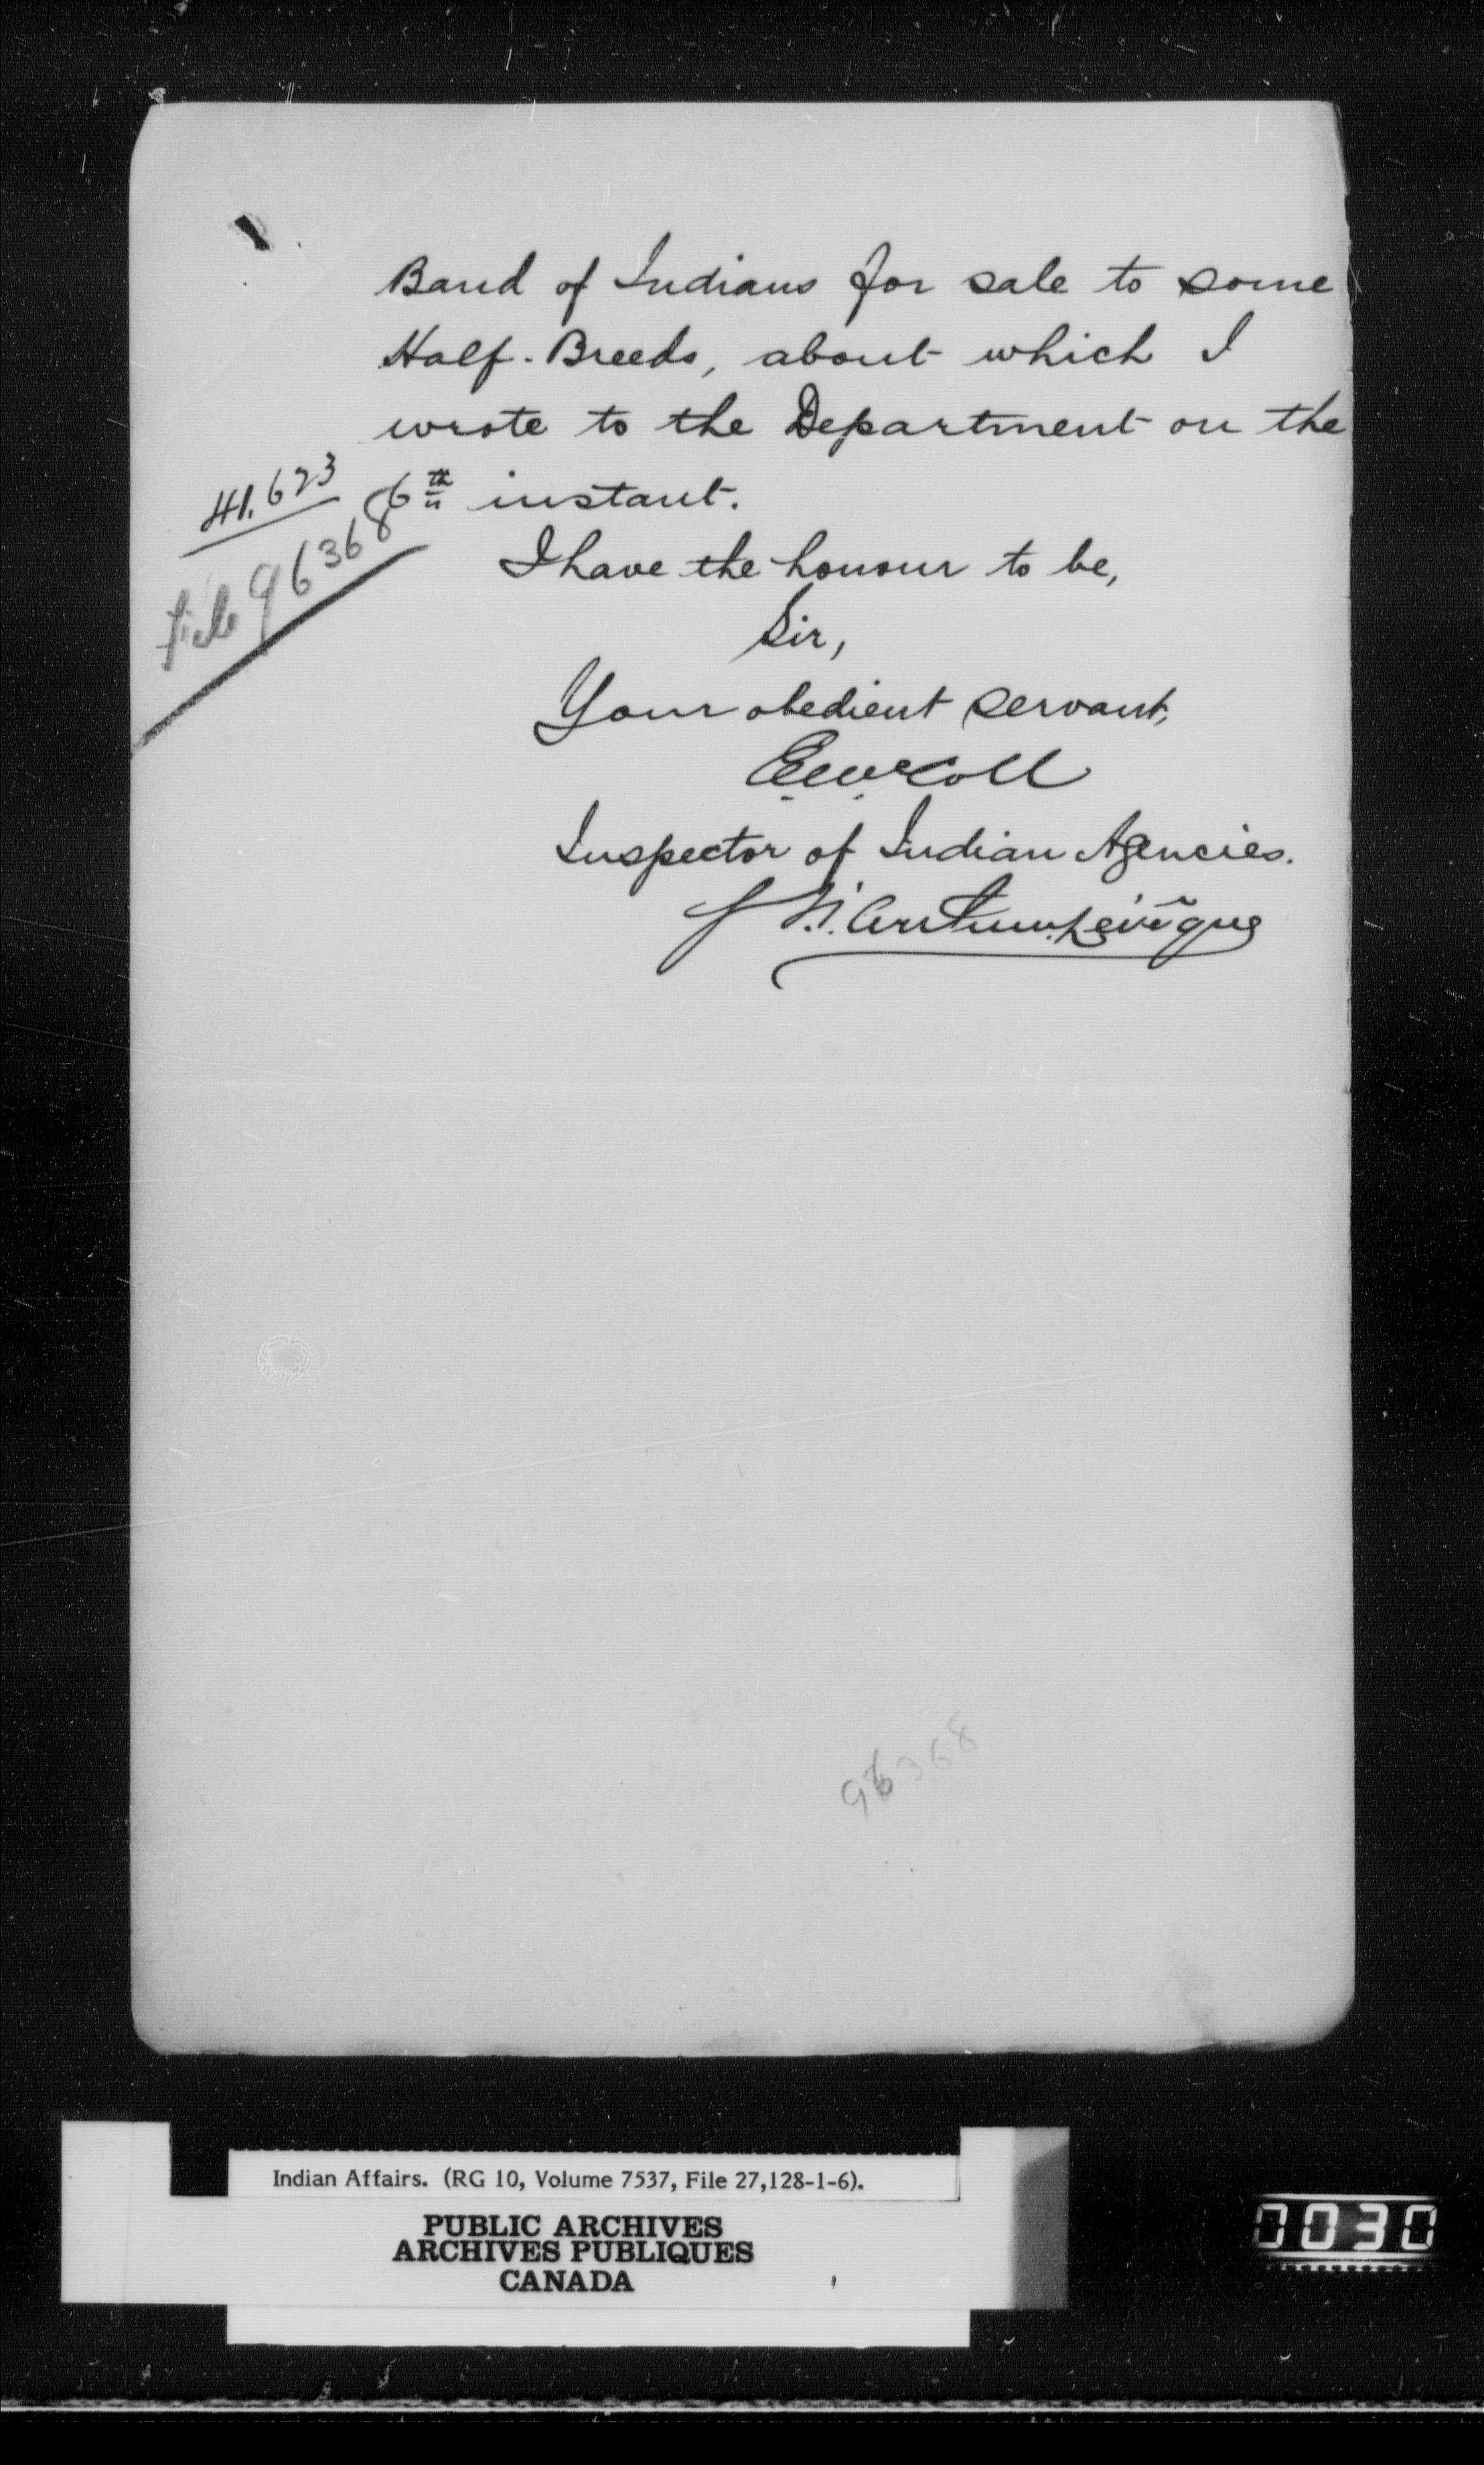 Band of Indians for sale to some
Half-Breeds, about which I
wrote to the Department on the
6th instant.
41.623
File 96368
I have the honour to be,
Sir,
Your obedient servant,
E McColl
Inspector of Indian Agencies.
Levêque
96368
Indian Affairs. (RG 10, Volume 7537, File 27,128-1-6).
PUBLIC ARCHIVES
ARCHIVES PUBLIQUES
CANADA
0030